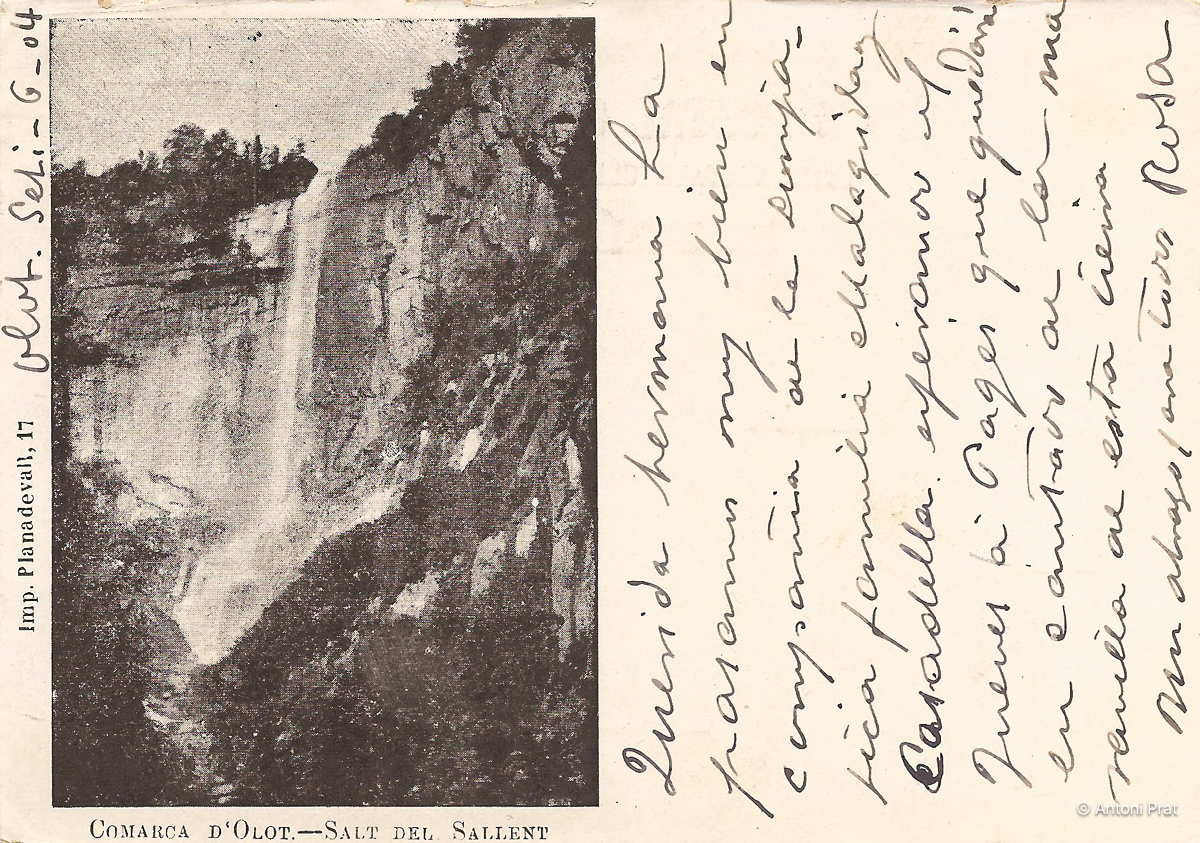 Olot. Set. - 6 - 04
Imp. Planadevall, 17
COMARCA D'OLOT.—SALT DEL SALLENT
Querida hermana La
pasamos muy bien en
compañia de la simpa-
tica familia Malagrida y
Casadella. esperamos el
Jueves à Pagés que quedará
en cantado de las ma
ravillas de esta tierra
Un abrazo para todos Rosa
© Antoni Prat